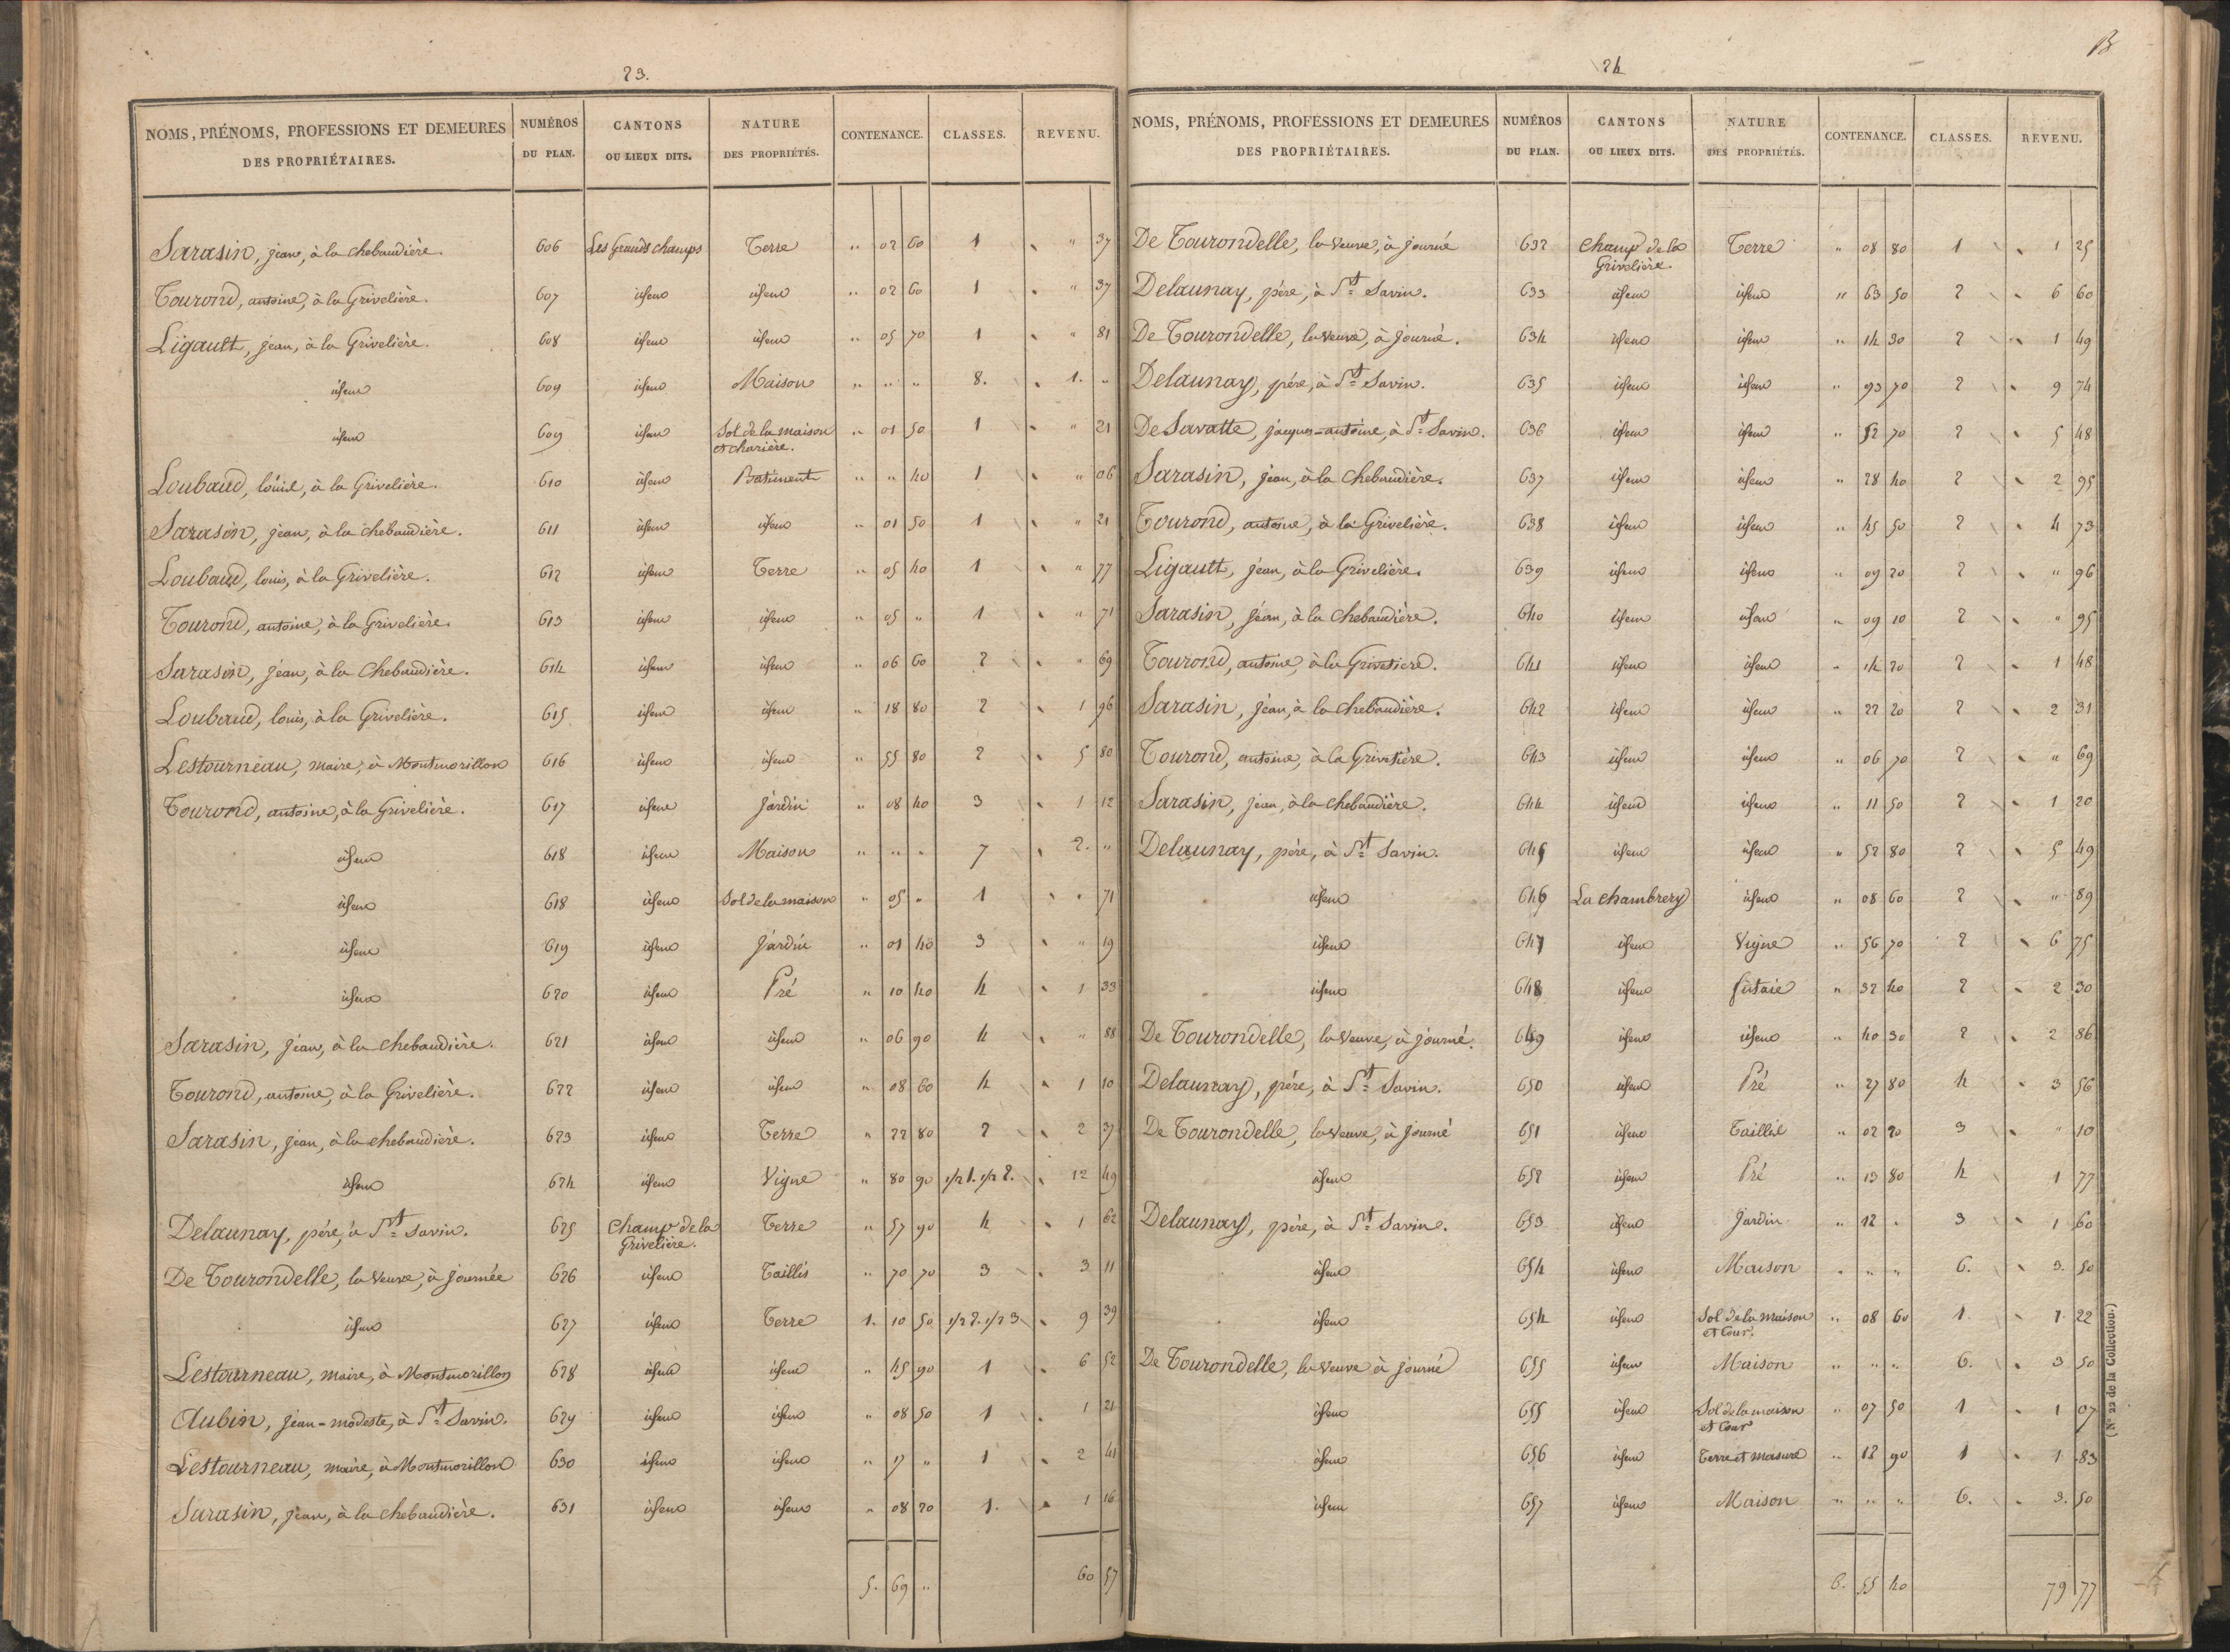 23.
NOMS, PRÉNOMS, PROFESSIONS ET DEMEURES DES PROPRIÉTAIRES. NUMÉROS DU PLAN. CANTONS OU LIEUX DITS. NATURE DES PROPRIÉTÉS. CONTENANCE. CLASSES. REVENU.
Sarasin, jean, à la chebaudière. 606 Les Grands champs Terre " 02 60 1 " " 37
Tourond, antoine, à la Grivelière. 607 idem idem " 02 60 1 " " 37
Ligault, jean, à la Grivelière. 608 idem idem " 05 70 1 " " 81
idem 609 idem Maison " " " 8. " 1. "
idem 609 idem Sol de la maison " 01 50 1 " " 21
et charière.
Loubaud, louis, à la Grivelière. 610 idem Batiment " " 40 1 " " 06
Sarasin, jean, à la chebaudière. 611 idem idem " 01 50 1 " " 21
Loubaud, louis, à la Grivelière. 612 idem Terre " 05 40 1 " " 77
Tourond, antoine, à la Grivelière. 613 idem idem " 05 " 1 " " 71
Sarasin, jean, à la Chebaudière. 614 idem idem " 06 60 2 " " 69
Loubaud, louis, à la Grivelière. 615 idem idem " 18 80 2 " 1 96
Lestourneau, maire, à Montmorillon 616 idem idem " 55 80 2 " 5 80
Tourond, antoine, à la Grivelière. 617 idem Jardin " 08 40 3 " 1 12
idem 618 idem Maison " " " 7 " 2. "
idem 618 idem Sol de la maison " 05 " 1 " " 71
idem 619 idem Jardin " 01 40 3 " " 19
idem 620 idem Pré " 10 40 4 " 1 33
Sarasin, jean, à la chebaudière. 621 idem idem " 06 90 4 " " 88
Tourond, antoine, à la Grivelière. 622 idem idem " 08 60 4 " 1 10
Sarasin, jean, à la chebaudière. 623 idem Terre " 22 80 2 " 2 37
idem 624 idem Vigne " 80 90 1/2 1. 1/2 2. " 12 49
Delaunay, père, à St Savin. 625 Champ de la Terre " 57 90 4 " 1 62
Grivelière.
De Tourondelle, la veuve, à journée 626 idem Taillis " 70 70 3 " 3 11
idem 627 idem Terre 1. 10 50 1/2 2. 1/2 3 " 9 39
Lestourneau, maire, à Montmorillon 628 idem idem " 45 90 1 " 6 52
Aubin, jean-modeste, à St Savin. 629 idem idem " 08 50 1 " 1 21
Lestourneau, maire, à Montmorillon 630 idem idem " 17 " 1 " 2 41
Sarasin, jean, à la chebaudière. 631 idem idem " 08 20 1. " 1 16
5. 69 " 60 57
24
NOMS, PRÉNOMS, PROFESSIONS ET DEMEURES DES PROPRIÉTAIRES. NUMÉROS DU PLAN. CANTONS OU LIEUX DITS. NATURE DES PROPRIÉTÉS. CONTENANCE. CLASSES. REVENU.
De Tourondelle, la veuve, à journé 632 Champ de la Terre " 08 80 1 " 1 25
Grivelière.
Delaunay, père, à St Savin. 633 idem idem " 63 50 2 " 6 60
De Tourondelle, la veuve, à journé. 634 idem idem " 14 30 2 " 1 49
Delaunay, père, à St Savin. 635 idem idem " 93 70 2 " 9 74
De Savatte, jacques-antoine, à St Savin. 636 idem idem " 52 70 2 " 5 48
Sarasin, jean, à la Chebaudière. 637 idem idem " 28 40 2 " 2 95
Tourond, antoine, à la Grivelière. 638 idem idem " 45 50 2 " 4 73
Ligault, jean, à la Grivelière. 639 idem idem " 09 20 2 " " 96
Sarasin, jean, à la Chebaudière. 640 idem idem " 09 10 2 " " 95
Tourond, antoine, à la Grivelière. 641 idem idem " 14 20 2 " 1 48
Sarasin, jean, à la chebaudière. 642 idem idem " 22 20 2 " 2 31
Tourond, antoine, à la Grivelière. 643 idem idem " 06 70 2 " " 69
Sarasin, jean, à la chebaudière. 644 idem idem " 11 50 2 " 1 20
Delaunay, père, à St Savin. 645 idem idem " 52 80 2 " 5 49
idem 646 La chambrery idem " 08 60 2 " " 89
idem 647 idem Vigne " 56 70 2 " 6 75
idem 648 idem futaie " 32 40 2 " 2 30
De Tourondelle, la veuve, à journé. 649 idem idem " 40 30 2 " 2 86
Delaunay, père, à St Savin. 650 idem Pré " 27 80 4 " 3 56
De Tourondelle, la veuve, à journé 651 idem Taillis " 02 20 3 " " 10
idem 652 idem Pré " 13 80 4 1 77
Delaunay, père, à St Savin. 653 idem Jardin " 12 " 3 " 1 60
idem 654 idem Maison " " " 6. " 3. 50
idem 654 idem Sol de la maison " 08 60 1 " 1 22
et Cour.
De Tourondelle, la veuve à journé 655 idem Maison " " " 6. " 3 50
idem 655 idem Sol de la maison " 07 50 1 " 1 07
et Cour
idem 656 idem Terre et masure " 12 90 1 " 1 83
idem 657 idem Maison " " " 6. " 3. 50
6. 55 40 79 77
(N° 22 de la Collection.)